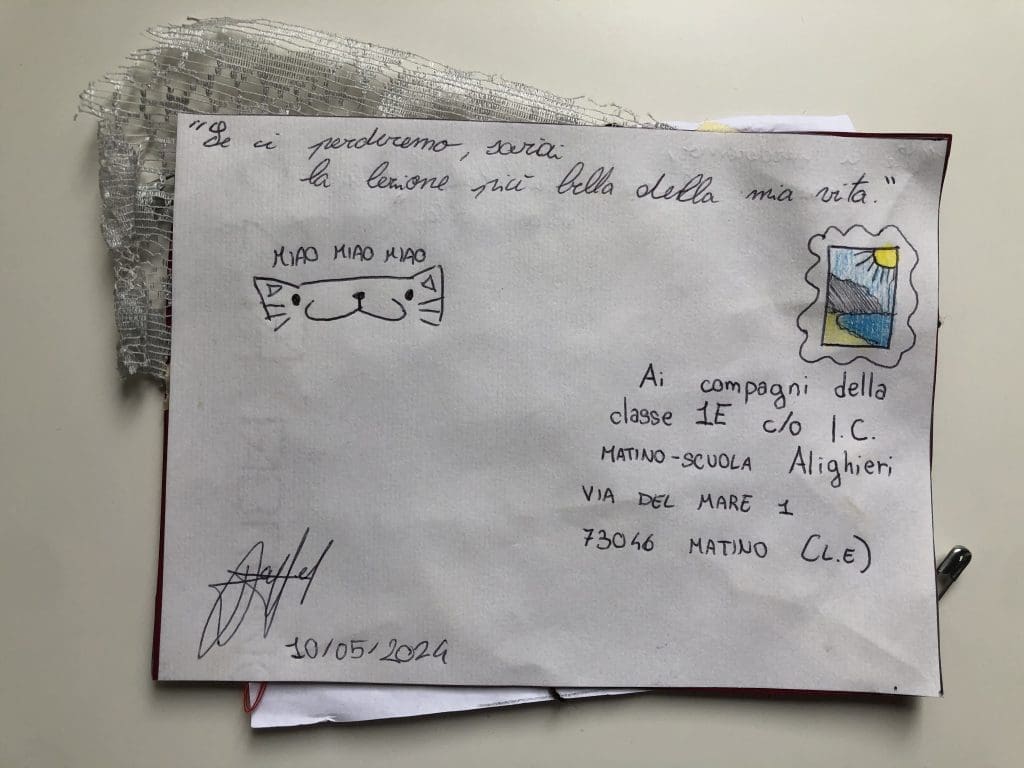 "Se ci perderemo, sarai
la lezione più bella della mia vita."
MIAO MIAO MIAO
Ai compagni della
classe 1E c/o I.C.
MATINO-SCUOLA Alighieri
VIA DEL MARE 1
73046 MATINO (L.E)
10/05/2024